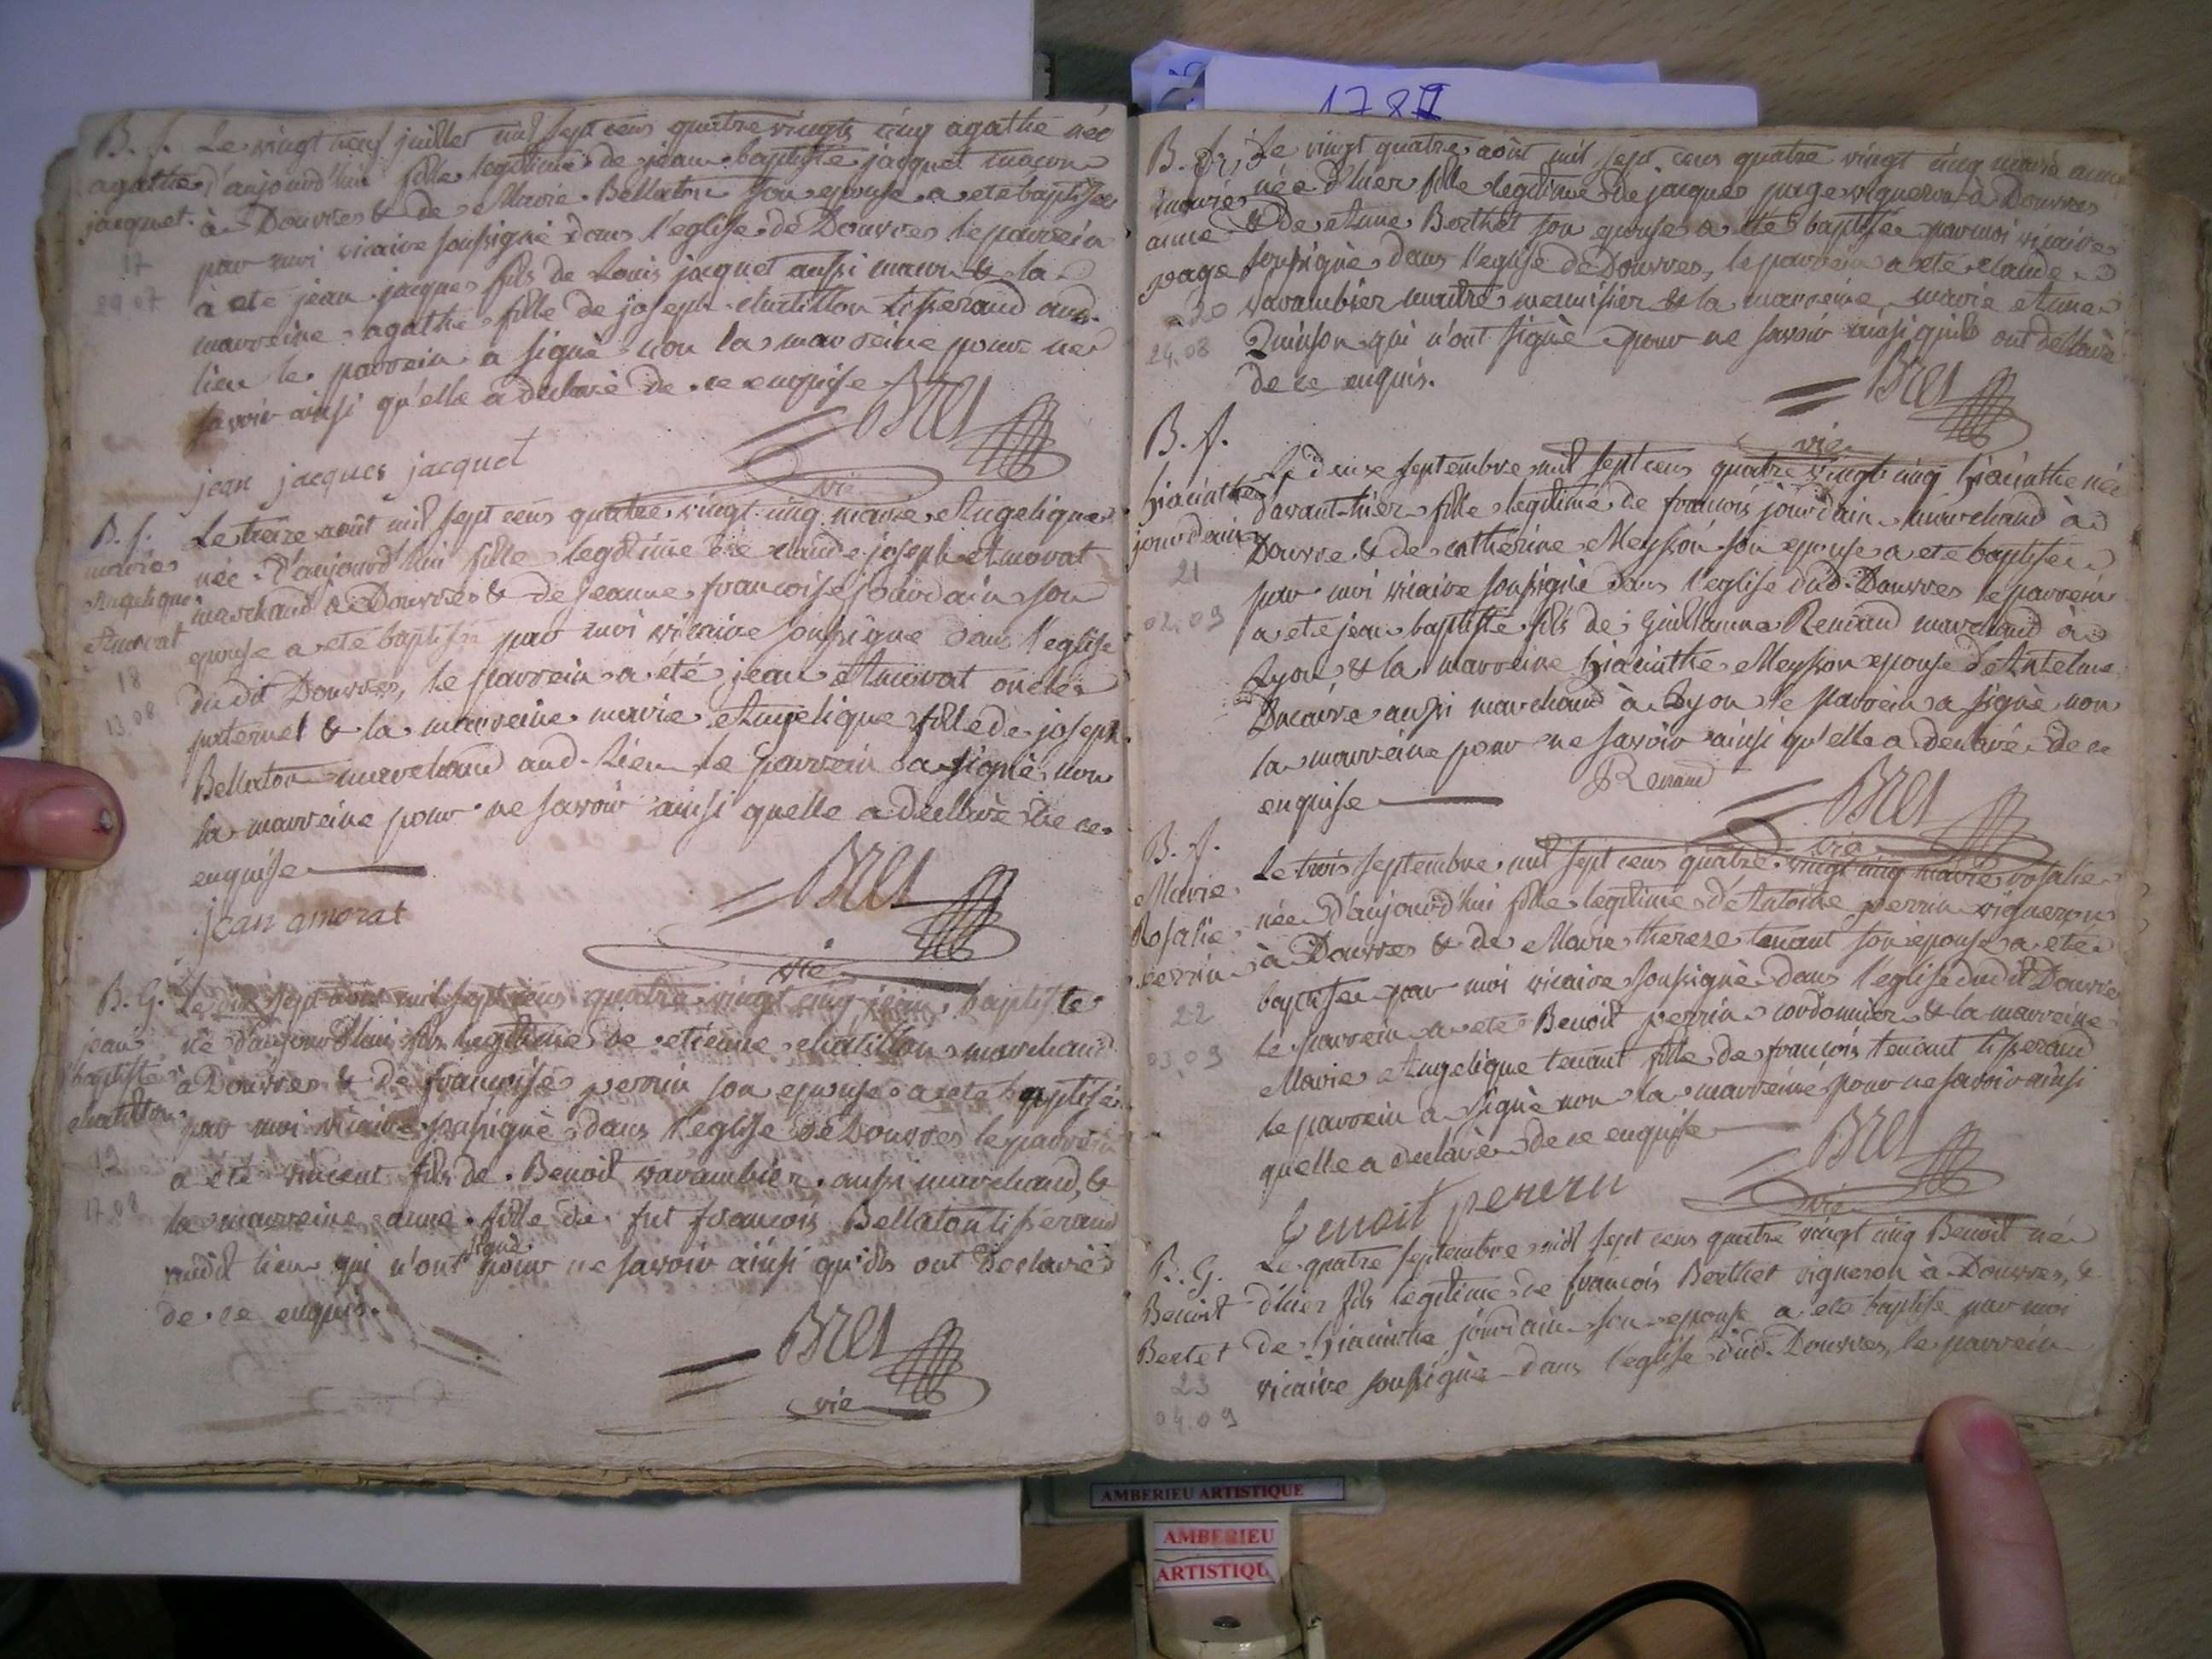 1787
B. f. Le vingt neuf juillet mil sept cens quatre vingts cinq agathe née
agathe d'aujourd'hui fille legitime de jean baptiste jacquet macon
jacquet. à Douvres & de Marie Bellaton son epouse a eté baptisée
17 par moi vicaire soussigné dans l'eglise de Douvres le parrein
29 07 à eté jean jacques fils de Louis jacquet aussi macon & la
marreine agathe fille de joseph chatillon tisserand aud.
lieu le parrein a signé non la marreine pour ne
savoir ainsi qu'elle a declaré de ce enquise
Bret
vic
jean jacques jacquet
B. f. Le treize août mil sept cens quatre vingt cinq marie Angelique
marie née d'aujourd'hui fille legitime de claude joseph Amorat
Angelique marchand à Douvres & de jeanne francoise jourdain son
Amorat epouse a eté baptisée par moi vicaire soussigné dans l'eglise
18 dudit Douvres, le parrein a été jean Amorat oncle
13.08 paternel & la marreine marie Angelique fille de joseph
Bellaton marchand aud. lieu le parrein a signé non
la marreine pour ne savoir ainsi quelle a declaré de ce
enquise
jean amorat
Bret
vic
B. G. Le dix sept août mil sept cens quatre vingt cinq jean baptiste
jean né d'aujourd'hui fils legitime de etienne chatillon marchand
baptiste à Douvres & de francoise perrin son epouse a eté baptisé
chatillon par moi vicaire soussigné dans l'eglise de Douvres le parrein
19 a été vincent fils de Benoit varambier aussi marchand, &
17.08 la marreine anne fille de fut francois Bellaton tisserand
audit lieu qui n'ont signé pour ne savoir ainsi qu'ils ont declaré
de ce enquis.
Bret
vic
B. f. Le vingt quatre août mil sept cens quatre vingt cinq marie anne
marie née d'hier fille legitime de jacques page vigneron à Douvres
anne & de Anne Berthet son epouse a eté baptisée par moi vicaire
page soussigné dans l'eglise de Douvres, le parrein a eté claude
20 varambier maitre menuisier & la marreine marie Anne
24.08 Quinson qui n'ont signé pour ne savoir ainsi qu'ils ont declaré
de ce enquis.
Bret
vic
B. f.
Le deux septembre mil sept cens quatre vingt cinq hiacinthe née
hiacinthe d'avant-hier fille legitime de francois jourdain marchand à
jourdain Douvre & de catherine Meysson son epouse a eté baptisée
21 par moi vicaire soussigné dans l'eglise dud. Douvres le parrein
02.09 a eté jean baptiste fils de Guillaume Renaud marchand à
Lyon & la marreine hiacinthe Meysson epouse d'Antelme
Ducaire aussi marchand à Lyon le parrein a signé non
la marreine pour ne savoir ainsi qu'elle a declaré de ce
enquise
Renaud
Bret
vic
B. f. Le trois septembre mil sept cens quatre vingt cinq marie rosalie
Marie née d'aujourd'hui fille legitime d'Antoine perrin vigneron
Rosalie à Douvres & de Marie therese tenant son epouse a eté
perrin baptisée par moi vicaire soussigné dans l'eglise dudit Douvres
22 le parrein a eté Benoit perrin cordonnier & la marreine
03.09 Marie Angelique tenant fille de francois tenant tisserand
le parrein a signé non la marreine pour ne savoir ainsi
quelle a declaré de ce enquise
benoit pererin
Bret
vic
B. G. Le quatre septembre mil sept cens quatre vingt cinq Benoit né
Benoit d'hier fils legitime de francois Berthet vigneron à Douvres, &
Bertet de hiacinthe jourdain son epouse a eté baptisé par moi
23 vicaire soussigné dans l'eglise dud. Douvres, le parrein
04.09
AMBERIEU ARTISTIQUE
AMBERIEU
ARTISTIQU